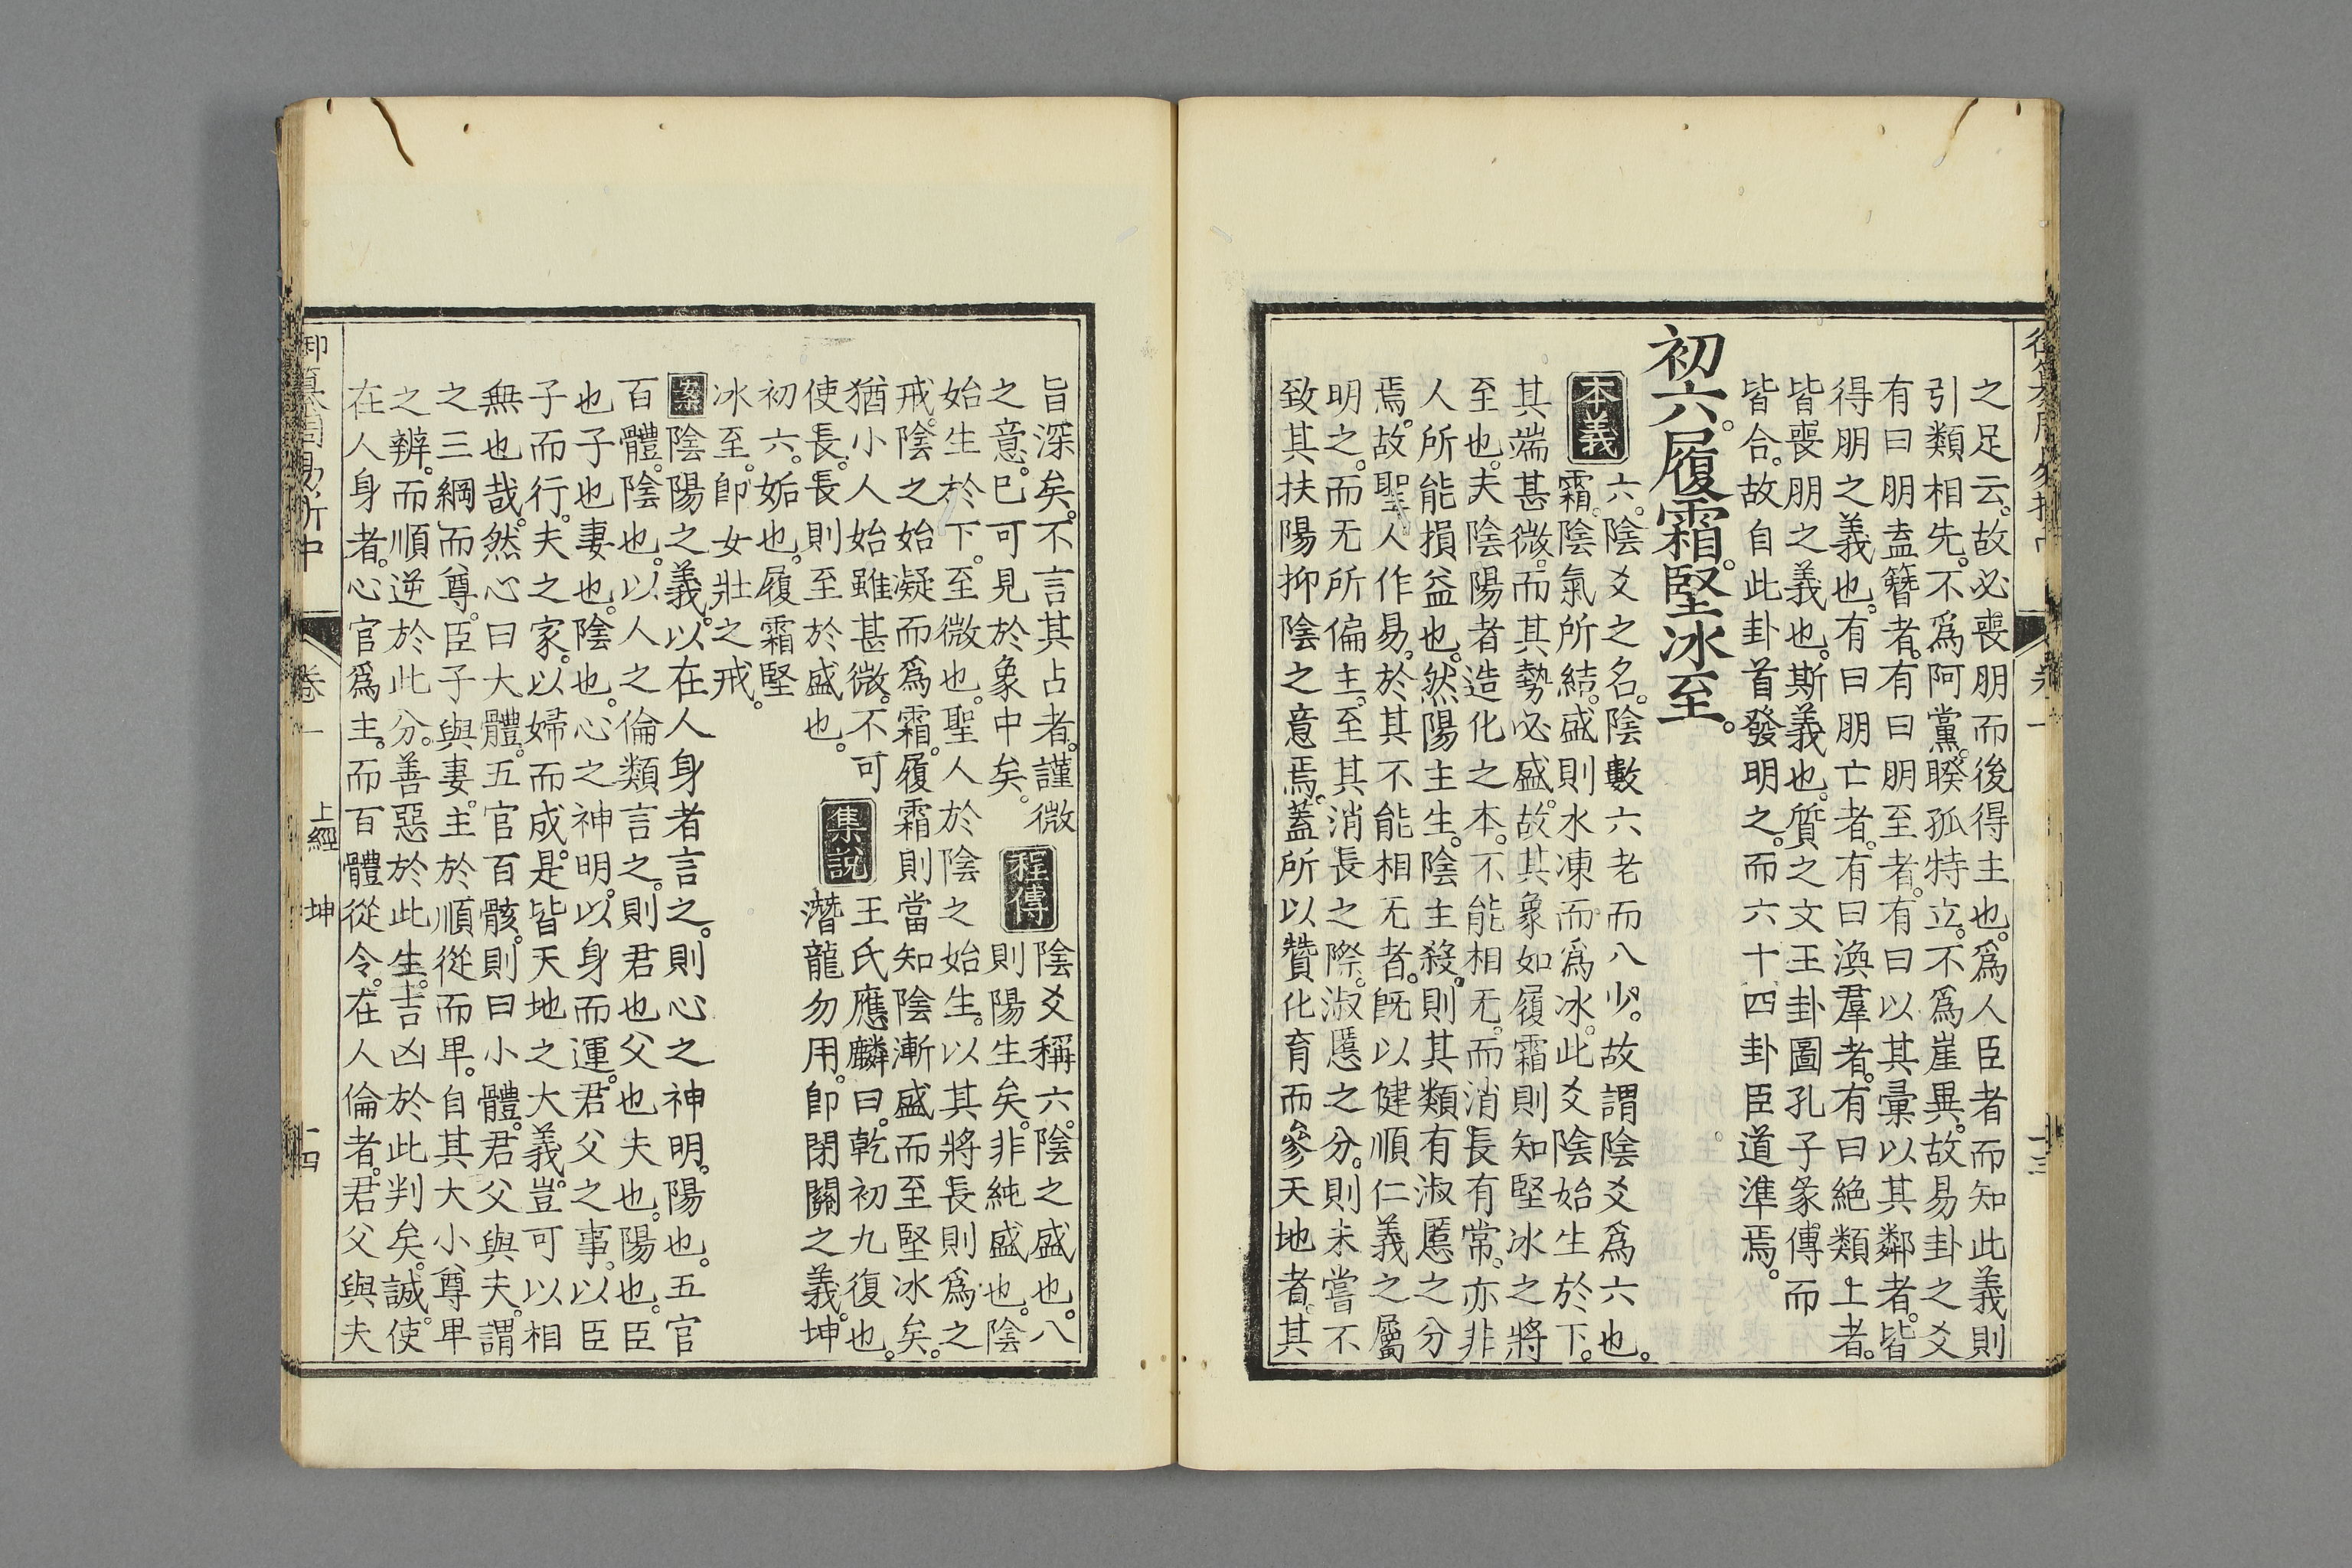 之足云。故必喪朋而後得主也。爲人臣者而知此義則
引類相先。不爲阿黨。睽孤特立。不爲崖異。故易卦之爻
有曰朋盍簪者。有曰朋至者。有曰以其彙以其鄰者。皆
得朋之義也。有曰朋亡者。有曰渙羣者。有曰絶類上者。
皆喪朋之義也。斯義也。質之文王卦圖孔子彖傳而
皆合。故自此卦首發明之。而六十四卦臣道準焉。
初六。履霜。堅冰至。
本義 六。陰爻之名。陰數六老而八少。故謂陰爻爲六也。
霜。陰氣所結。盛則水凍而爲冰。此爻陰始生於下。
其端甚微。而其勢必盛。故其象如履霜則知堅冰之將
至也。夫陰陽者造化之本。不能相无。而消長有常。亦非
人所能損益也。然陽主生。陰主殺。則其類有淑慝之分
焉。故聖人作易。於其不能相无者。旣以健順仁義之屬
明之。而无所偏主。至其消長之際。淑慝之分。則未嘗不
致其扶陽抑陰之意焉。蓋所以贊化育而參天地者。其
卷一
十三
旨深矣。不言其占者。謹微
之意。已可見於象中矣。
程傳 陰爻稱六。陰之盛也。八
則陽生矣。非純盛也。陰
始生於下。至微也。聖人於陰之始生。以其將長則爲之
戒。陰之始凝而爲霜。履霜則當知陰漸盛而至堅冰矣。
猶小人始雖甚微。不可
使長。長則至於盛也。
集說 王氏應麟曰。乾初九復也。
潛龍勿用。卽閉關之義。坤
初六。姤也。履霜堅
冰至。卽女壯之戒。
案 陰陽之義。以在人身者言之。則心之神明。陽也。五官
百體。陰也。以人之倫類言之。則君也父也夫也。陽也。臣
也子也妻也。陰也。心之神明。以身而運。君父之事。以臣
子而行。夫之家。以婦而成。是皆天地之大義。豈可以相
無也哉。然心曰大體。五官百骸。則曰小體。君父與夫。謂
之三綱而尊。臣子與妻。主於順從而卑。自其大小尊卑
之辨。而順逆於此分。善惡於此生。吉凶於此判矣。誠使
在人身者。心官爲主。而百體從令。在人倫者。君父與夫
御纂周易折中
卷一
上經 坤
十四